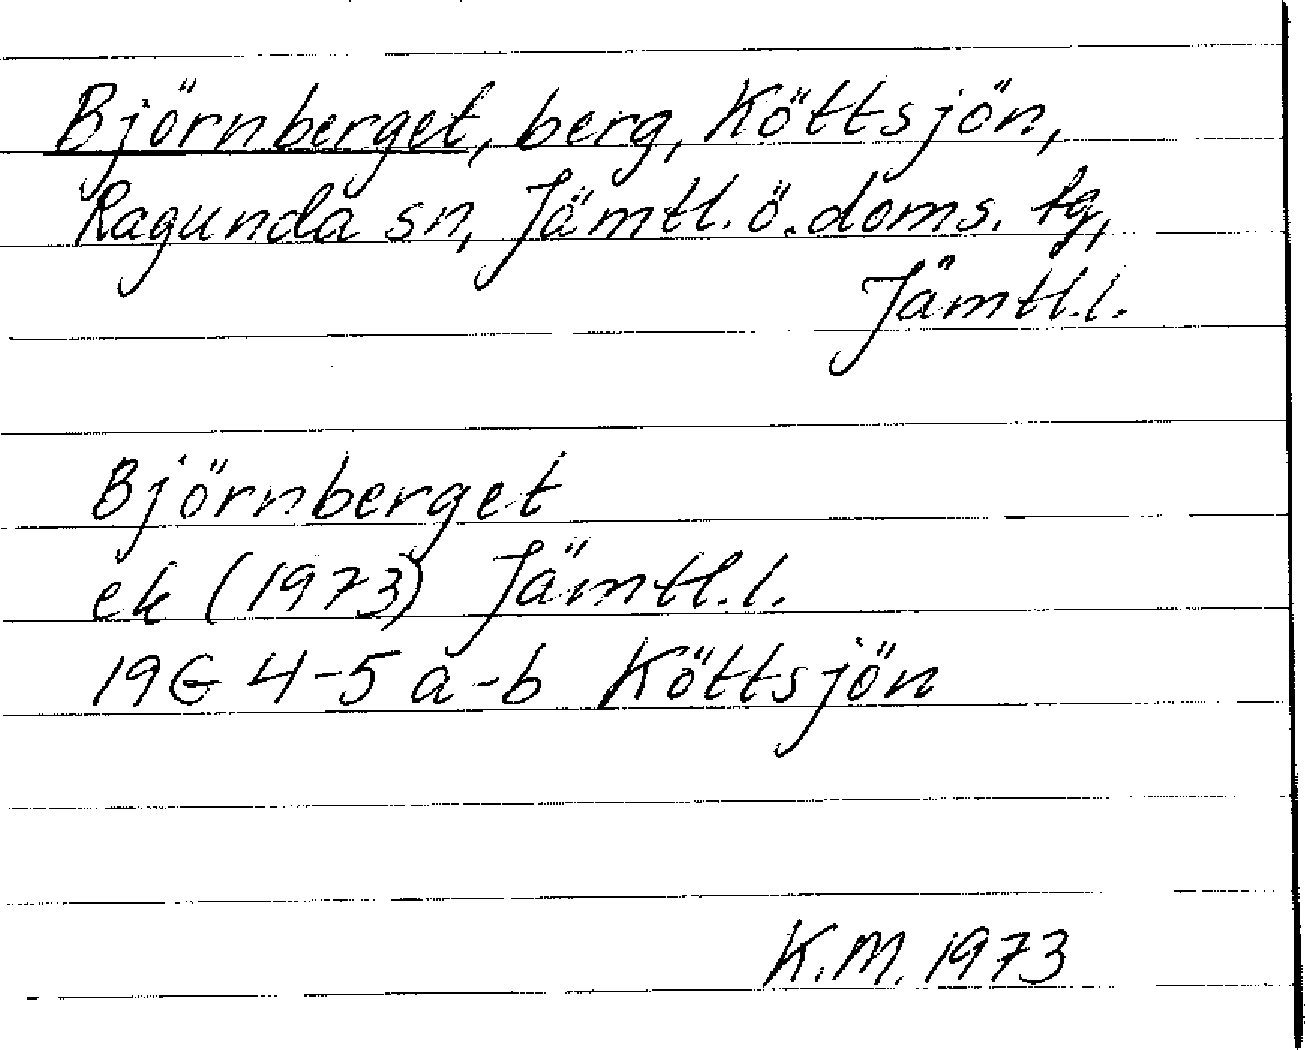 Björnberget, berg, Köttsjön,
Ragunda sn, Jämtl. ö. doms. tg,
Jämtl.l.
Björnberget
ek (1973) Jämtl.l.
19G 4-5 a-b Köttsjön
K.M. 1973